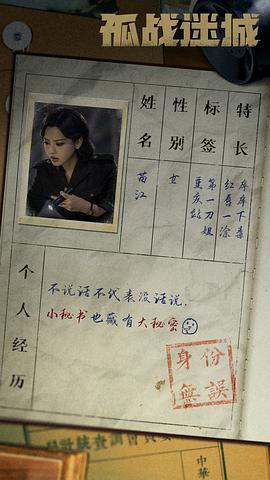 孤战迷城
姓名
性别
标签
特长
苗江
女
重庆站
第一刀姐
红唇一涂
库库下毒
个人经历
不说话不代表没话说，
小秘书也藏有大秘密
身份
無誤
中華